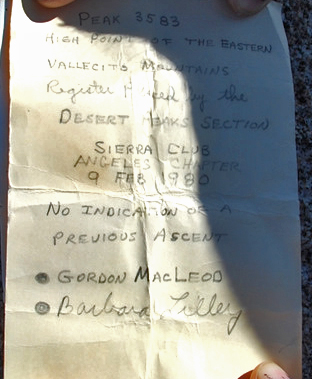 PEAK 3583
HIGH POINT OF THE EASTERN
VALLECITO MOUNTAINS
Register Placed by the
DESERT PEAKS SECTION
SIERRA CLUB
ANGELES CHAPTER
9 FEB 1980
NO INDICATION OF A
PREVIOUS ASCENT
GORDON MACLEOD
Barbara Lilley